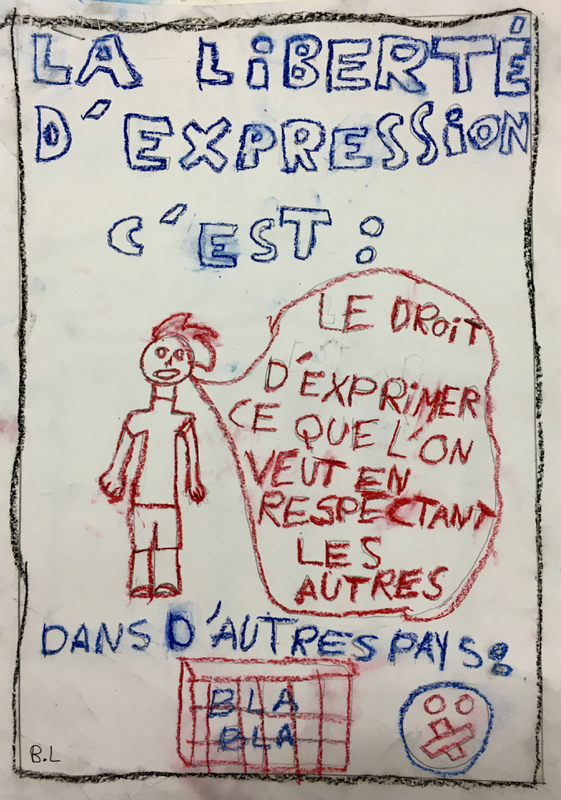 LA LiBERTÉ
D'EXPRESSiON
C'EST :
LE DROiT
D'ÉXPRiMER
CE QUE L'ON
VEUT EN
RESPECTANT
LES
AUTRES
DANS D'AUTRES PAYS :
BLA
BLA
B.L